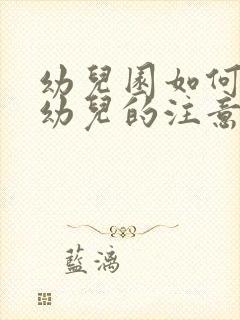 幼兒園如何
幼兒的注意
藍漓